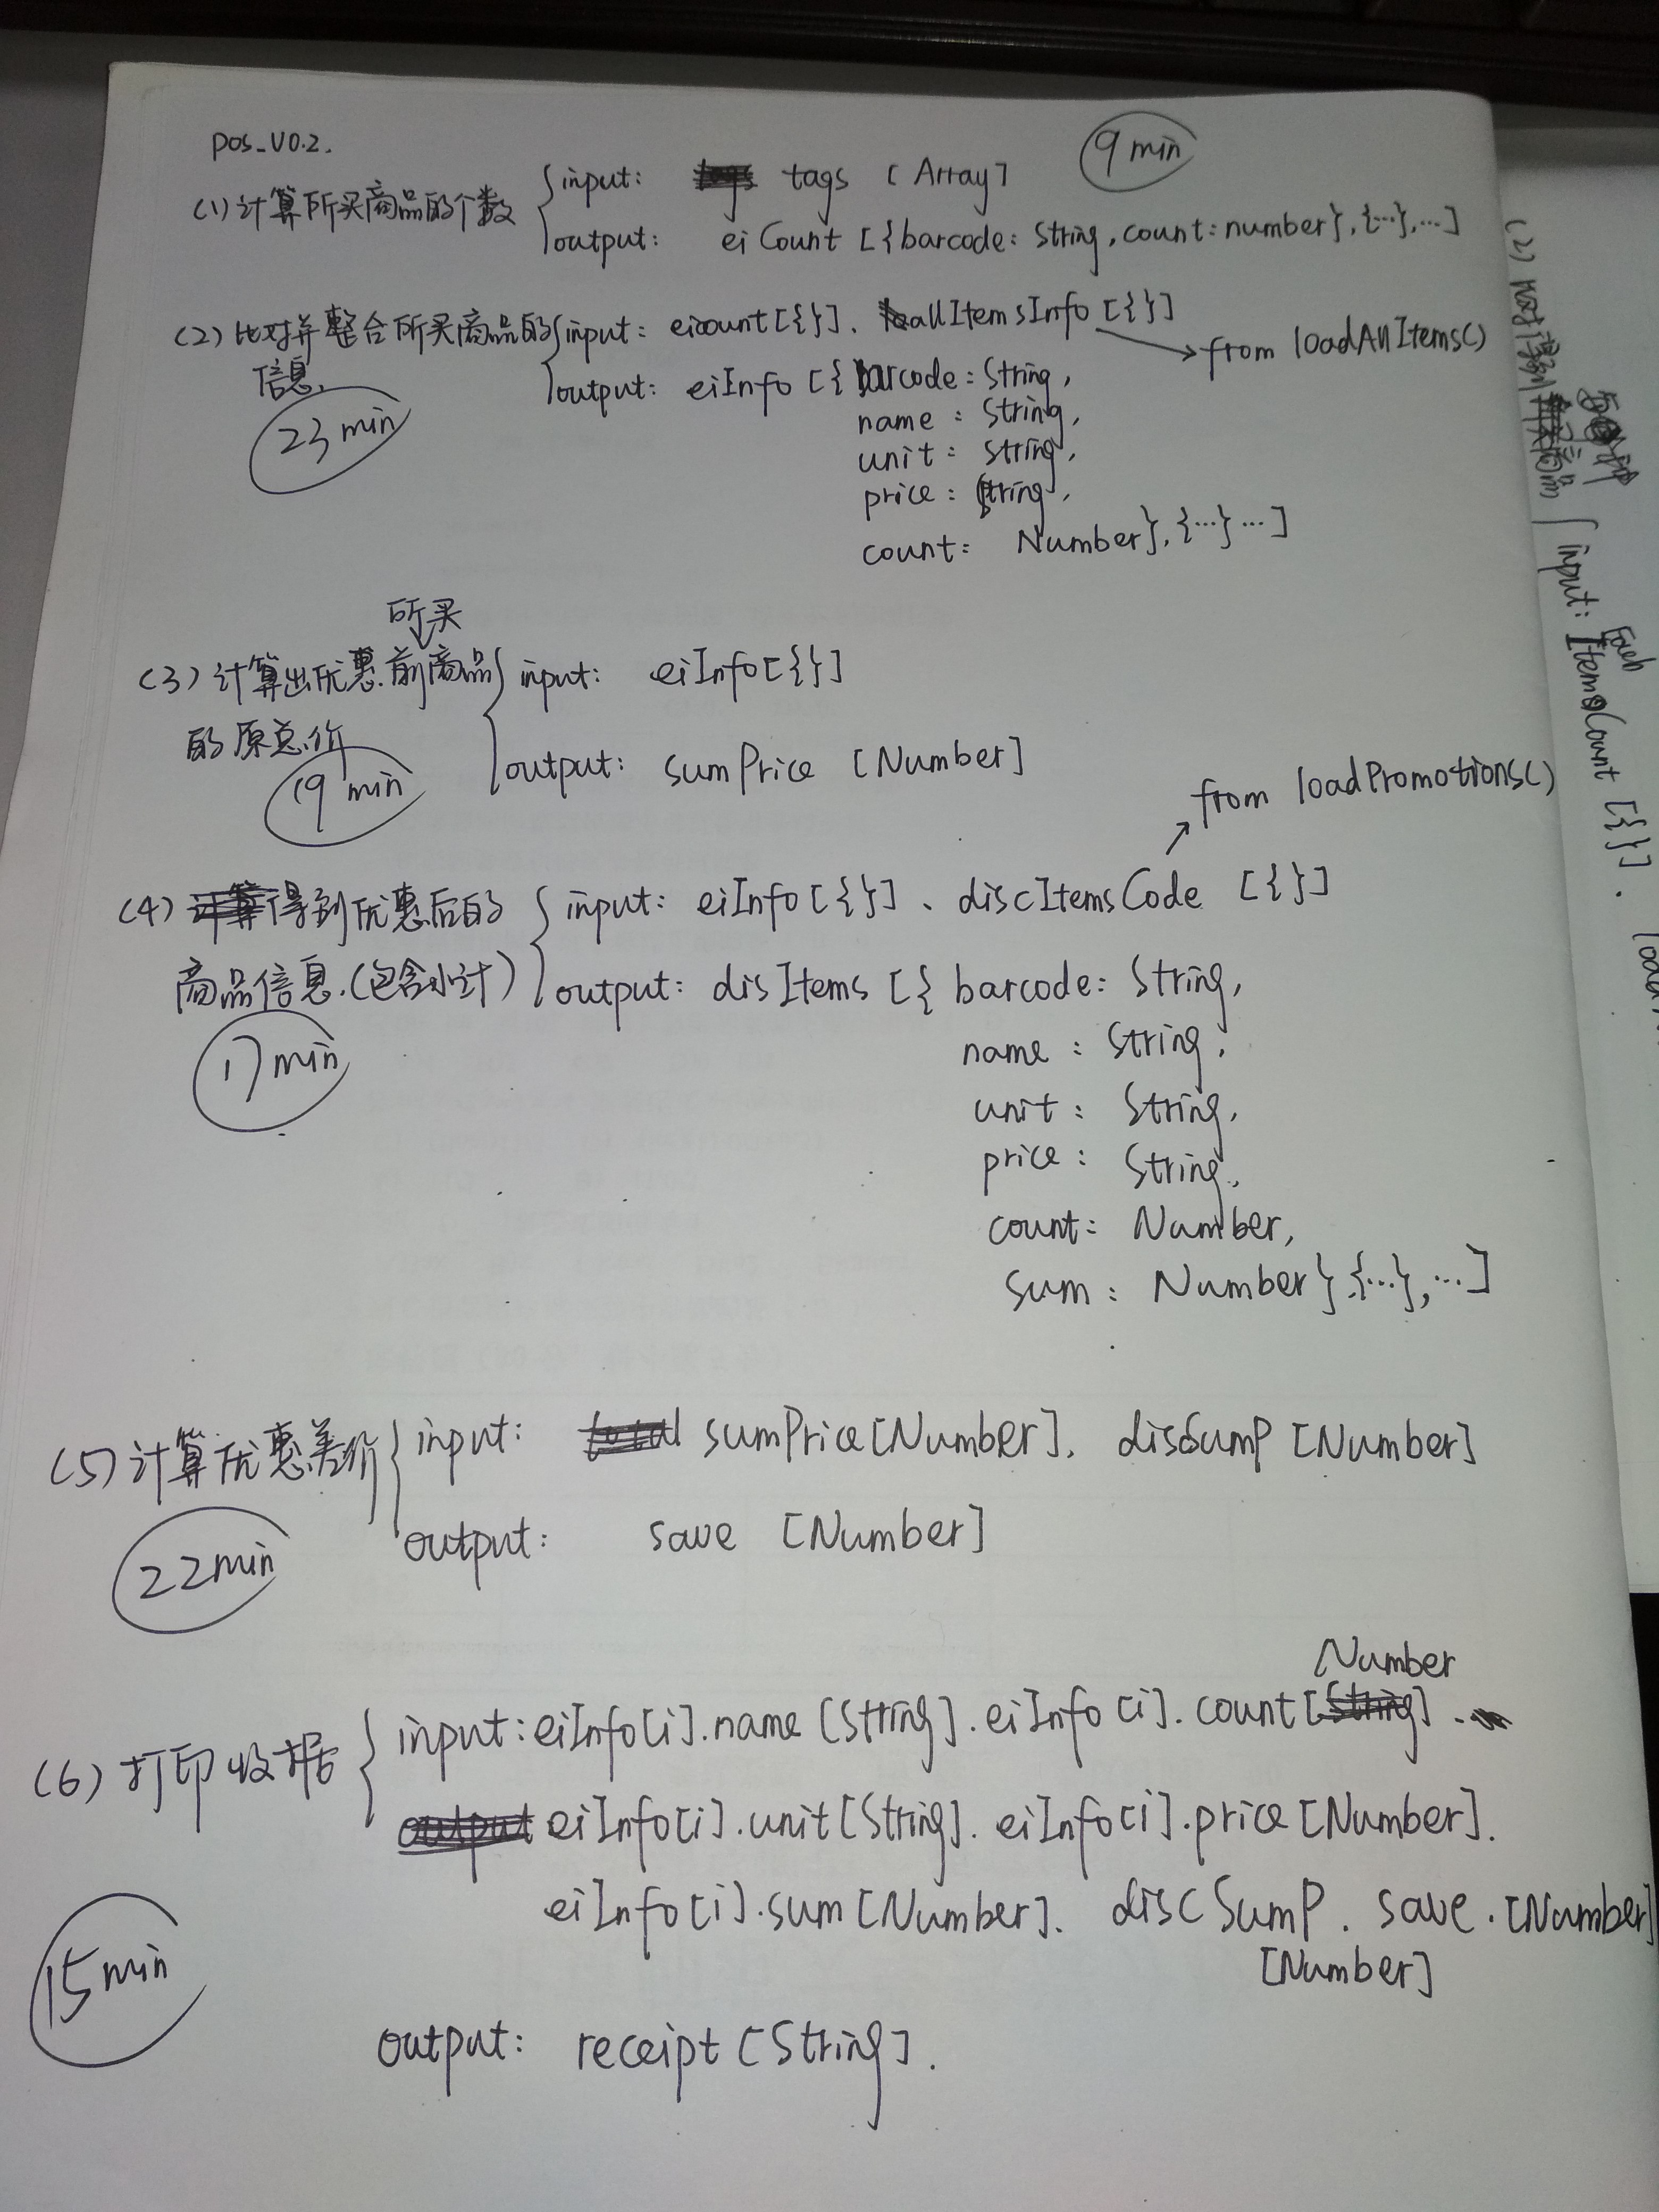 pos_v0.2.
9 min
(1) 计算所买商品的个数
input: tags [Array]
output: eiCount [{barcode: String, count: number}, {…}, …]
(2) 比对并整合所买商品的
信息.
23 min
input: eicount[{}]、allItemsInfo [{}]
from loadAllItems()
output: eiInfo [{ barcode: String,
name: String,
unit: String,
price: String,
count: Number}, {…} …]
所买
(3) 计算出优惠前商品
的原总价
19 min
input: eiInfo[{}]
output: sumPrice [Number]
from loadPromotions()
(4) 得到优惠后的
商品信息.(包含小计)
17 min
input: eiInfo[{}]、discItemsCode [{}]
output: disItems [{ barcode: String,
name: String,
unit: String,
price: String,
count: Number,
sum: Number}, {…}, …]
(5) 计算优惠差价
22min
input: sumPrice[Number]. disSumP [Number]
output: save [Number]
(6) 打印收据
15min
Number
input: eiInfo[i].name [String]. eiInfo[i].count[ ].
eiInfo[i].unit[String]. eiInfo[i].price[Number].
eiInfo[i].sum[Number]. discSumP. save. [Number]
[Number]
output: receipt [String].
(2)
input: ItemsCount [{}].
Each